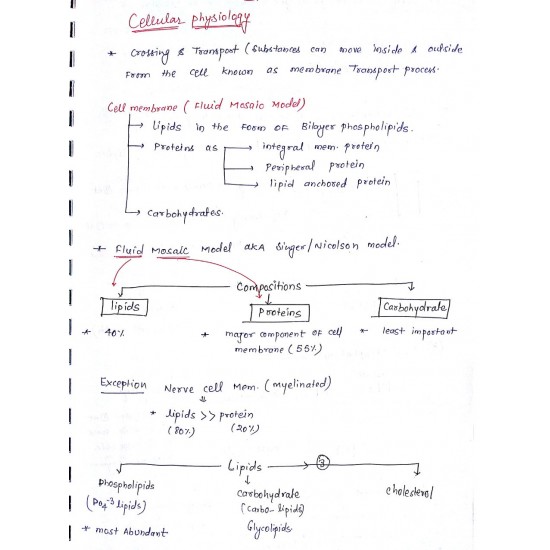 Cellular physiology
* Crossing & Transport (Substances can move inside & outside
From the cell known as membrane Transport process.
Cell membrane ( Fluid Mosaic Model)
→ Lipids in the Form of Bilayer phospholipids.
→ Proteins as → integral mem. protein
→ Peripheral protein
→ lipid anchored protein
→ carbohydrates.
* Fluid Mosaic Model aka Singer/Nicolson model.
Compositions
lipids Proteins Carbohydrate
* 40% * major component of cell * least important
membrane (55%)
Exception Nerve cell Mem. (myelinated)
* lipids >> protein
(80%) (20%)
Lipids → ③
Phospholipids carbohydrate cholesterol
(PO4-3 lipids) (carbo-lipids)
* most Abundant Glycolipids